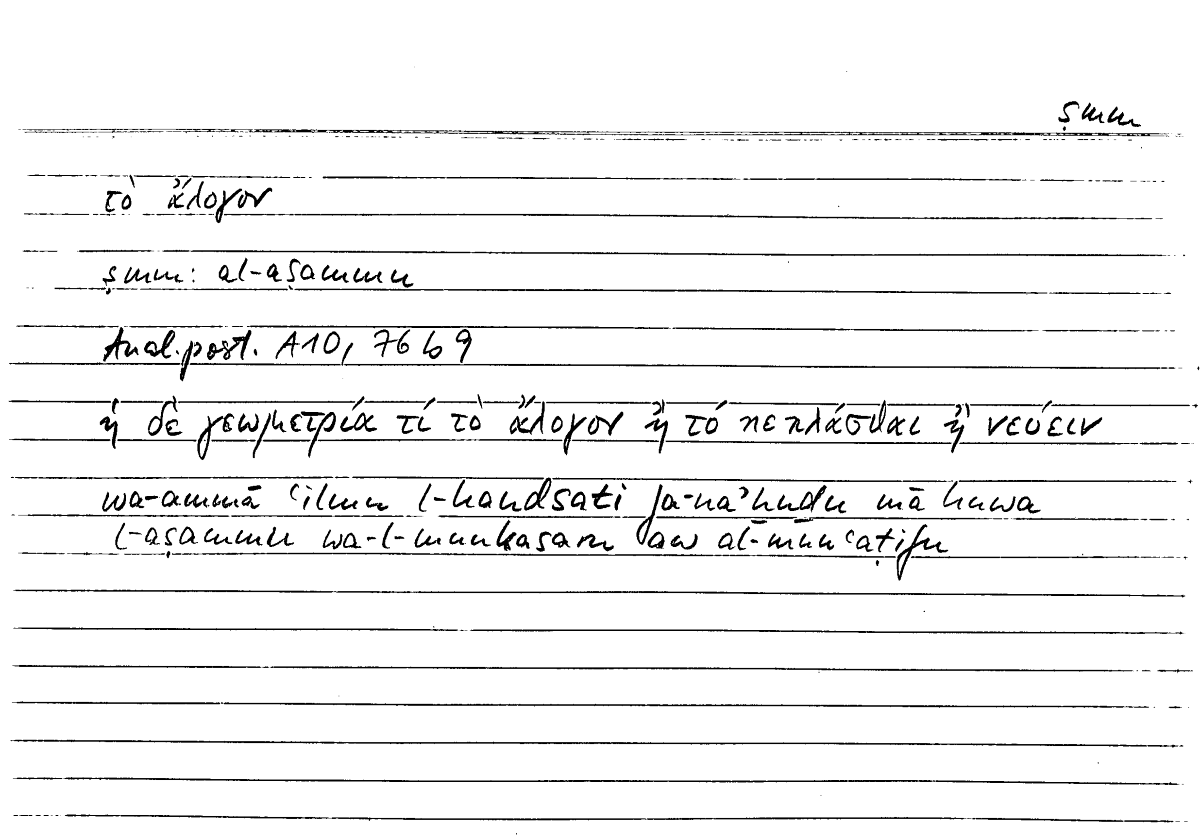 ṣmm
τὸ ἄλογον
ṣmm: al-aṣammu
Anal. post. A10, 76 b 9
ἡ δὲ γεωμετρία τί τὸ ἄλογον ἢ τό πεπλάσθαι ἢ νεύειν
wa-ammā ʿilmu l-handsati fa-naʾhudu mā huwa
l-aṣammu wa-l-munkasaru aw al-munʿaṭifu